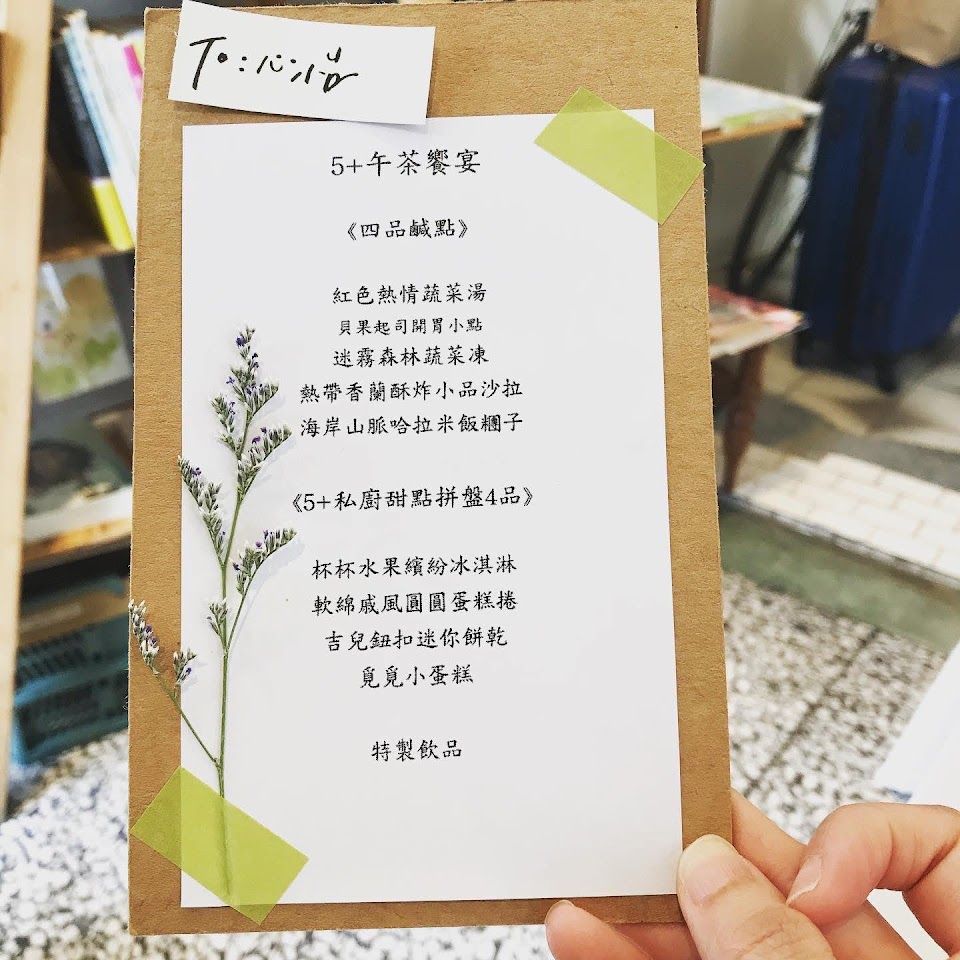 To:心怡
5+午茶饗宴
《四品鹹點》
紅色熱情蔬菜湯
貝果起司開胃小點
迷霧森林蔬菜凍
熱帶香蘭酥炸小品沙拉
海岸山脈哈拉米飯糰子
《5+私廚甜點拼盤4品》
杯杯水果繽紛冰淇淋
軟綿戚風圓圓蛋糕捲
吉兒鈕扣迷你餅乾
覓覓小蛋糕
特製飲品